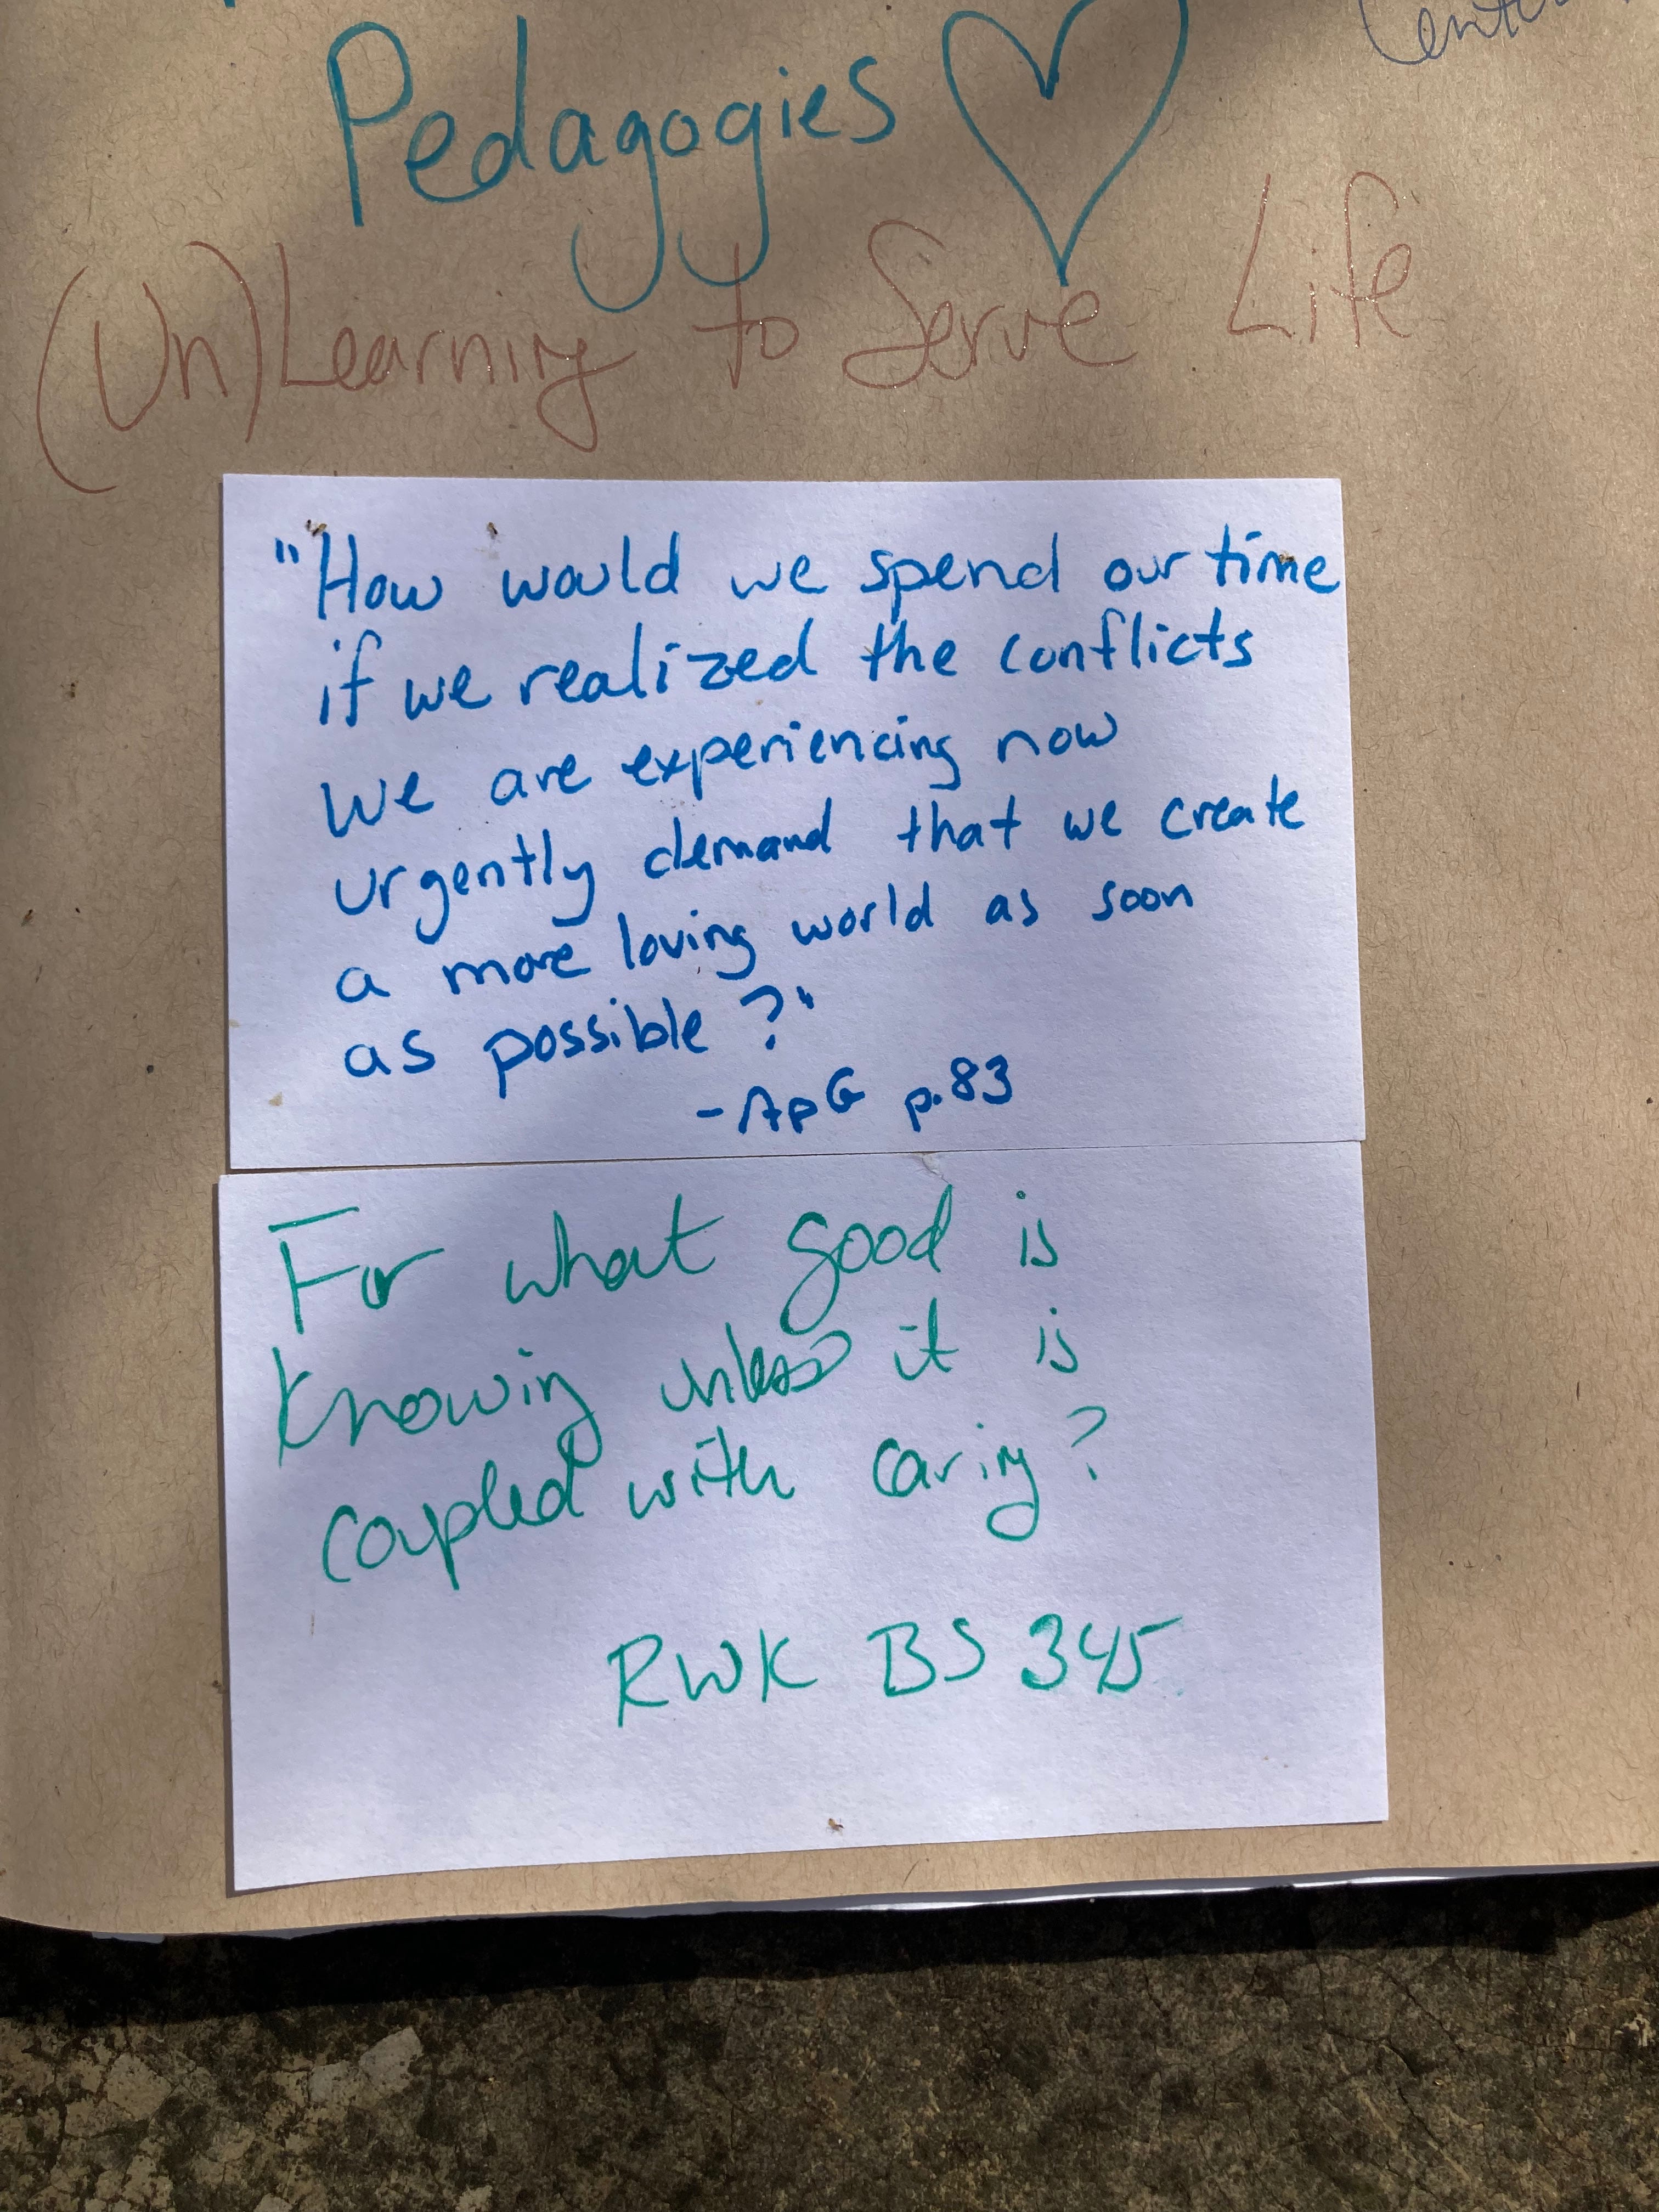 Pedagogies
(Un)Learning to Serve Life
"How would we spend our time
if we realized the conflicts
we are experiencing now
urgently demand that we create
a more loving world as soon
as possible?"
-ApG p.83
For what good is
knowing unless it is
coupled with caring?
RWK BS 345